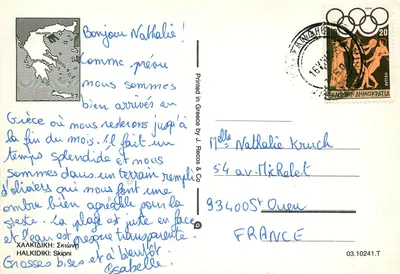 Bonjour Nathalie !
Comme prévu
nous sommes
bien arrivés en
Grèce où nous resterons jusqu'à
la fin du mois. Il fait un
temps splendide et nous
sommes dans un terrain rempli
d'oliviers qui nous font une
ombre bien agréable pour la
sieste. La plage est juste en face
et l'eau est presque transparente.
Grosses bises et à bientôt.
Isabelle.
ΧΑΛΚΙΔΙΚΗ: Σκιώνη
HALKIDIKI: Skioni
Printed in Greece by J. Recos & Co
20
ΕΛΛΗΝΙΚΗ ΔΗΜΟΚΡΑΤΙΑ
HELLAS
Melle Nathalie Kruch
54 av. Michelet
93400 St Ouen
FRANCE
03.10241.T